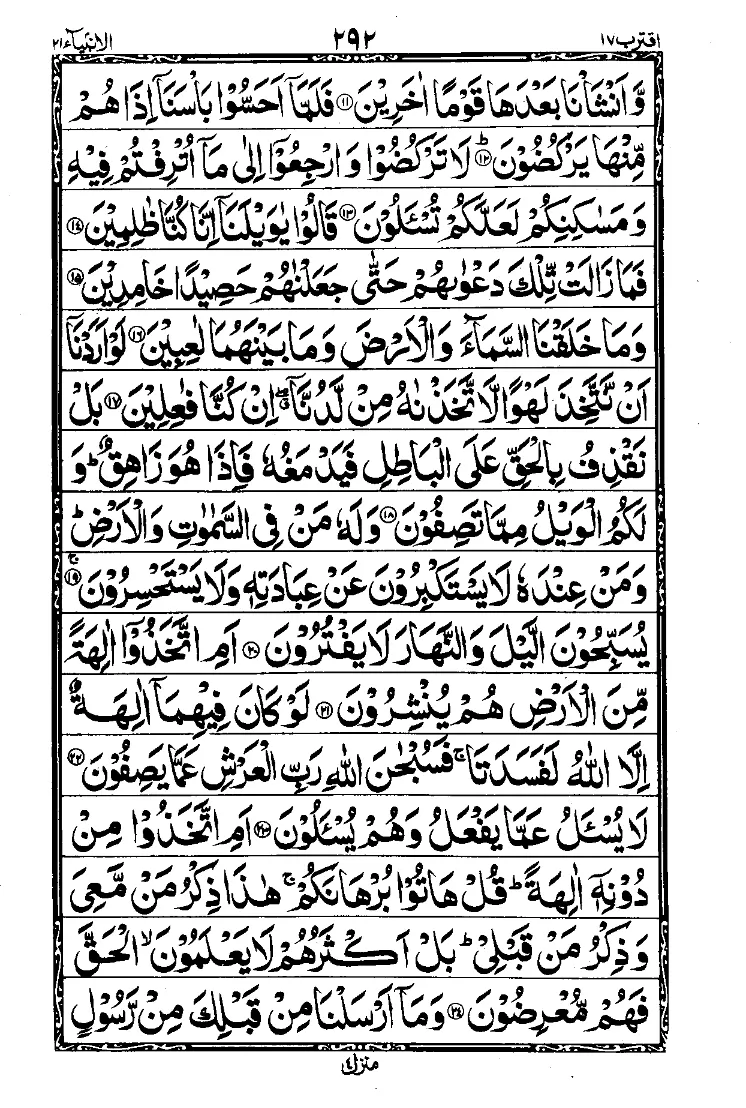 اقترب ١٧ ٢٩٢ الانبیآء ٢١
وَّ اَنْشَاْنَا بَعْدَهَا قَوْمًا اٰخَرِیْنَ ﴿۱۱﴾ فَلَمَّاۤ اَحَسُّوْا بَاْسَنَاۤ اِذَا هُمْ
مِّنْهَا یَرْكُضُوْنَ ؕ﴿۱۲﴾ لَا تَرْكُضُوْا وَ ارْجِعُوْۤا اِلٰى مَاۤ اُتْرِفْتُمْ فِیْهِ
وَ مَسٰكِنِكُمْ لَعَلَّكُمْ تُسْـَٔلُوْنَ ﴿۱۳﴾ قَالُوْا یٰوَیْلَنَاۤ اِنَّا كُنَّا ظٰلِمِیْنَ ﴿۱۴﴾
فَمَا زَالَتْ تِّلْكَ دَعْوٰىهُمْ حَتّٰى جَعَلْنٰهُمْ حَصِیْدًا خَامِدِیْنَ ﴿۱۵﴾
وَ مَا خَلَقْنَا السَّمَآءَ وَ الْاَرْضَ وَ مَا بَیْنَهُمَا لٰعِبِیْنَ ﴿۱۶﴾ لَوْ اَرَدْنَاۤ
اَنْ نَّتَّخِذَ لَهْوًا لَّاتَّخَذْنٰهُ مِنْ لَّدُنَّاۤ ۖۗ اِنْ كُنَّا فٰعِلِیْنَ ﴿۱۷﴾ بَلْ
نَقْذِفُ بِالْحَقِّ عَلَى الْبَاطِلِ فَیَدْمَغُهٗ فَاِذَا هُوَ زَاهِقٌ ؕ وَ
لَكُمُ الْوَیْلُ مِمَّا تَصِفُوْنَ ﴿۱۸﴾ وَ لَهٗ مَنْ فِی السَّمٰوٰتِ وَ الْاَرْضِ ؕ
وَ مَنْ عِنْدَهٗ لَا یَسْتَكْبِرُوْنَ عَنْ عِبَادَتِهٖ وَ لَا یَسْتَحْسِرُوْنَ ۚ﴿۱۹﴾
یُسَبِّحُوْنَ الَّیْلَ وَ النَّهَارَ لَا یَفْتُرُوْنَ ﴿۲۰﴾ اَمِ اتَّخَذُوْۤا اٰلِهَةً
مِّنَ الْاَرْضِ هُمْ یُنْشِرُوْنَ ﴿۲۱﴾ لَوْ كَانَ فِیْهِمَاۤ اٰلِهَةٌ
اِلَّا اللّٰهُ لَفَسَدَتَا ۚ فَسُبْحٰنَ اللّٰهِ رَبِّ الْعَرْشِ عَمَّا یَصِفُوْنَ ﴿۲۲﴾
لَا یُسْـَٔلُ عَمَّا یَفْعَلُ وَ هُمْ یُسْـَٔلُوْنَ ﴿۲۳﴾ اَمِ اتَّخَذُوْا مِنْ
دُوْنِهٖۤ اٰلِهَةً ؕ قُلْ هَاتُوْا بُرْهَانَكُمْ ۚ هٰذَا ذِكْرُ مَنْ مَّعِیَ
وَ ذِكْرُ مَنْ قَبْلِیْ ؕ بَلْ اَكْثَرُهُمْ لَا یَعْلَمُوْنَ ۙ الْحَقَّ
فَهُمْ مُّعْرِضُوْنَ ﴿۲۴﴾ وَ مَاۤ اَرْسَلْنَا مِنْ قَبْلِكَ مِنْ رَّسُوْلٍ
منزل ٤